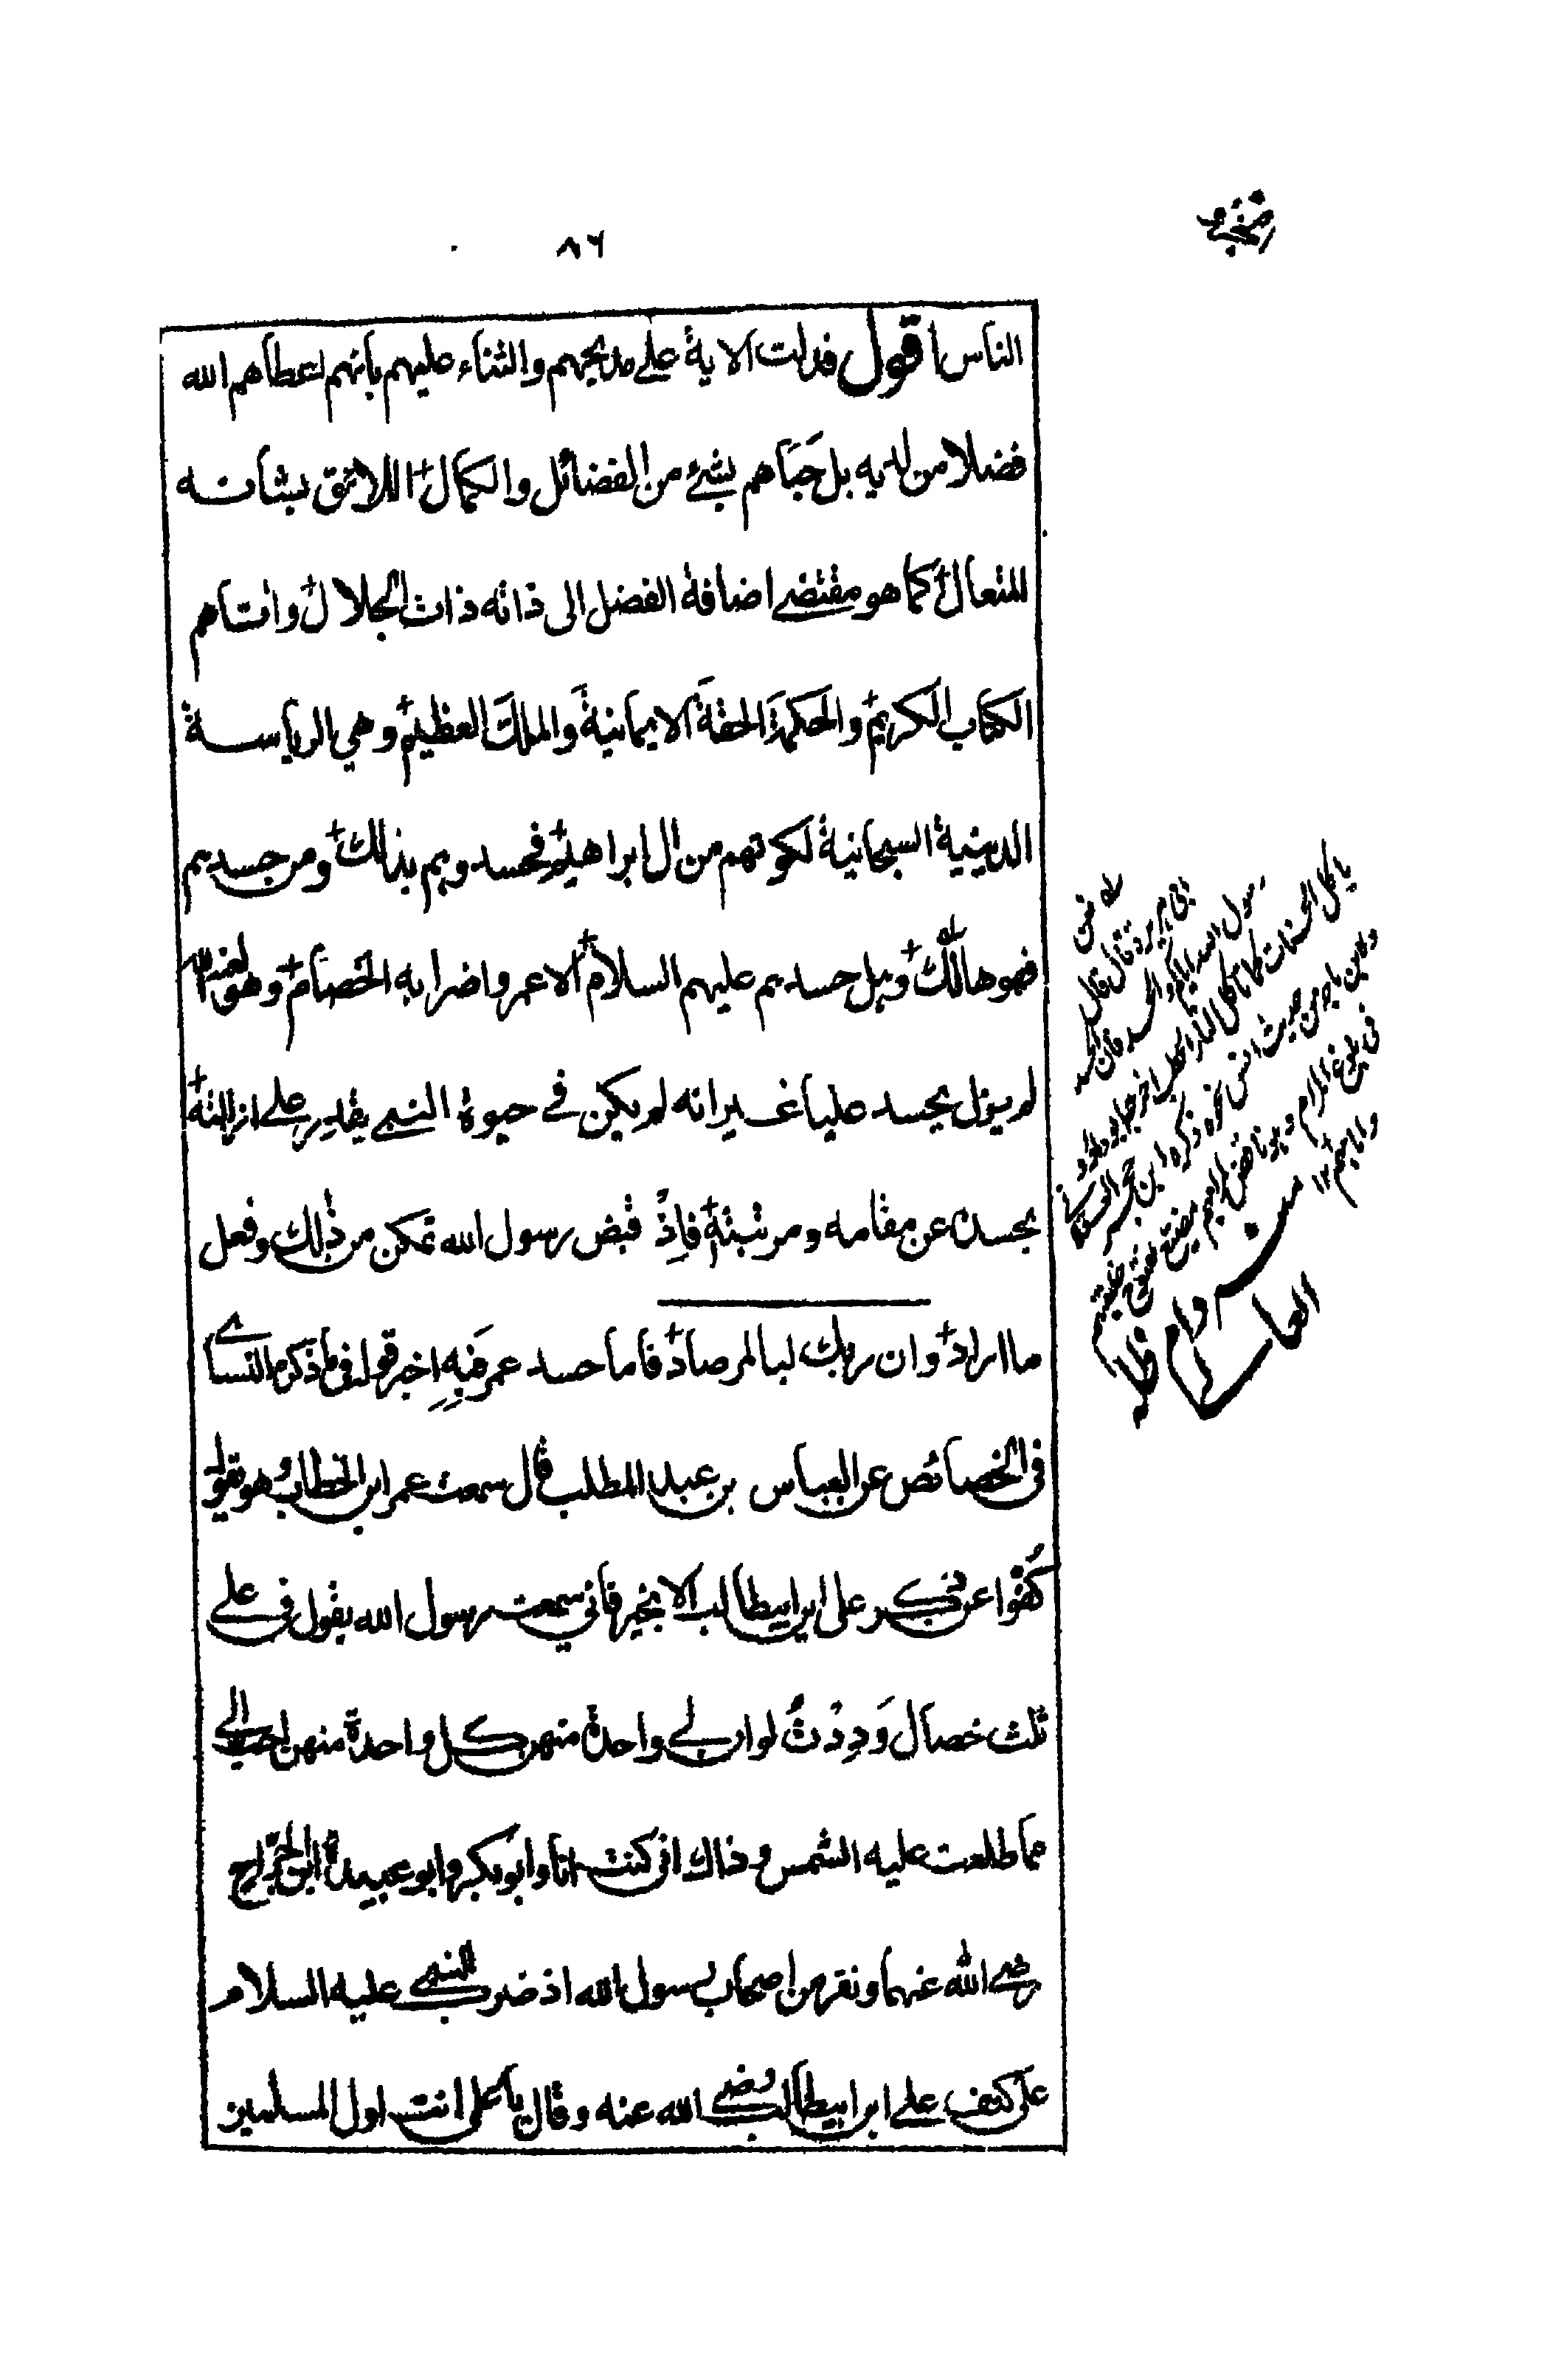 ٨٦
الناس اقول فدلت الاية على مديحهم والثناء عليهم بانهم اعطاهم الله
فضلا من لديه بل حَبَاهم بشئ من الفضائل والكمال اللائق بشانه
المتعال كما هو مقتضى اضافة الفضل الى ذاته ذات الجلال واتاهم
الكتاب الكريم والحكمة الحقة الايمانية والملك العظيم وهي الرياسة
الدينية السبحانية لكونهم من ال ابراهيم فحسدوهم بذالك ومن حسدهم
فهو هالك وهل حسدهم عليهم السلام الا عمر واضرابه الخصام وهو لعنه الله
لم يزل يحسد عليا غير انه لم يكن في حيوة النبي يقدر على ازالته
بحسده عن مقامه ومرتبته فاِذْ قبض رسول الله تمكن من ذلك وفعل
ما اراد وان ربك لبالمرصاد فاما حسد عمر فَبِهِ اخبر قوله في ما ذكره النساى
فى الخصائص عن العباس بن عبد المطلب قال سمعت عمر ابن الخطاب وهو يقول
كُفّوا عن ذكر على ابن ابيطالب الا بخير فاني سمعت رسول الله يقول في على
ثلث خصال وَدِدْتُ لو ان لى واحدة منهن كل واحدة منهن احب الى
مما طلعت عليه الشمس وذاك انى كنت انا وابو بكر وابو عبيدة ابن الجرّاح
رضى الله عنهما ونفر من اصحاب رسول الله اذ ضرب النبي عليه السلام
على كتف على ابن ابيطالب رضى الله عنه وقال يا على انت اول المسلمين
ابى هريرة قال قال
رسول الله اياكم والحسد فان الحسد
ياكل الحسنات كما تاكل النار الحطب اخرجه ابو داؤد
وابن ماجه من حديث انس نحوه ذكره ابن حجر العسقلانى
فى بلوغ المرام
دام ظله العالى